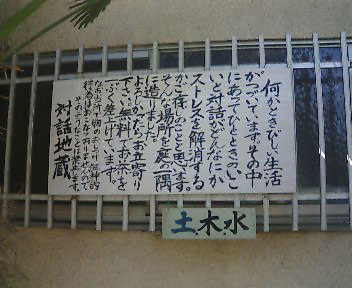 何かときびしい生活
がつづいています。世の中
にあってひとときのいこ
いと対話がどんなにか
ストレスを解消する
かご存じのことと思います。
そんな場所を庭の一隅
に造りました。
よろしかったらお立寄り
下さい無料でお茶を
ご差上げています。
対話地蔵
土木水